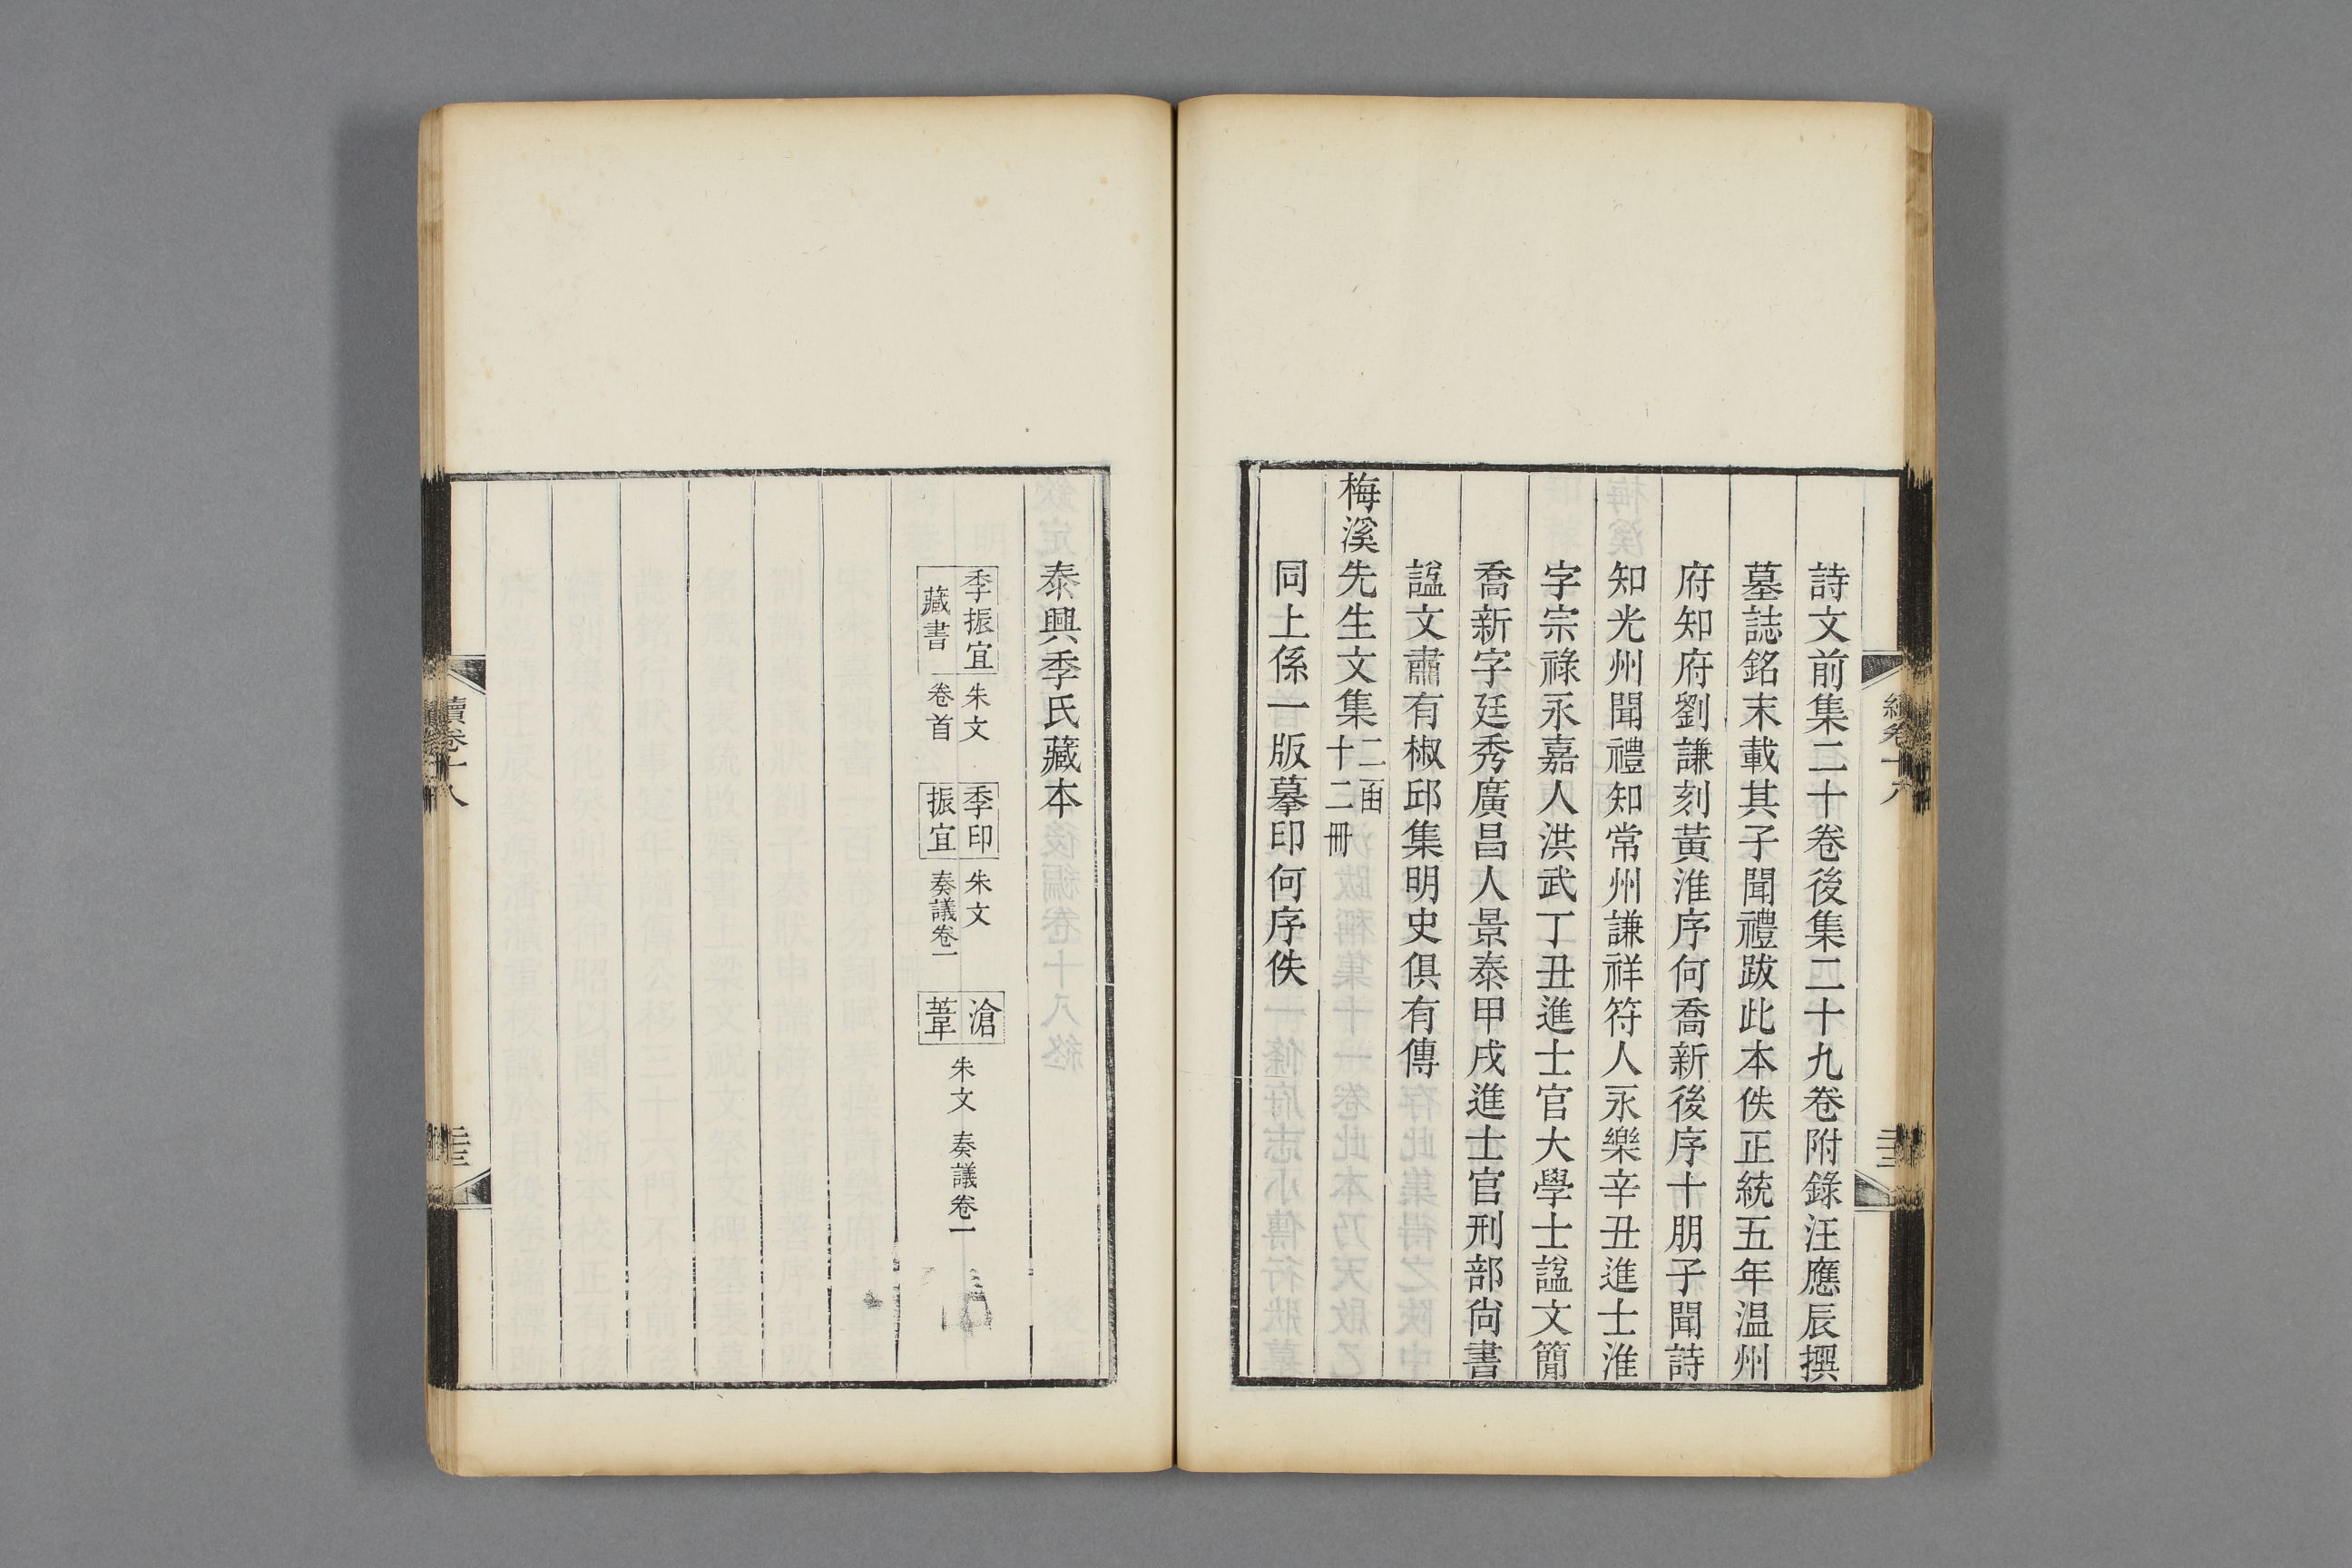 詩文前集二十卷後集二十九卷附錄汪應辰撰
墓誌銘末載其子聞禮跋此本佚正統五年温州
府知府劉謙刻黃淮序何喬新後序十朋子聞詩
知光州聞禮知常州謙祥符人永樂辛丑進士淮
字宗豫永嘉人洪武丁丑進士官大學士諡文簡
喬新字廷秀廣昌人景泰甲戌進士官刑部尙書
諡文肅有椒邱集明史俱有傳
梅溪先生文集二函十二冊
同上係一版摹印何序佚
泰興季氏藏本
季振宜藏書 朱文卷首
季印振宜 朱文奏議卷一
滄葦 朱文 奏議卷一
續卷十八